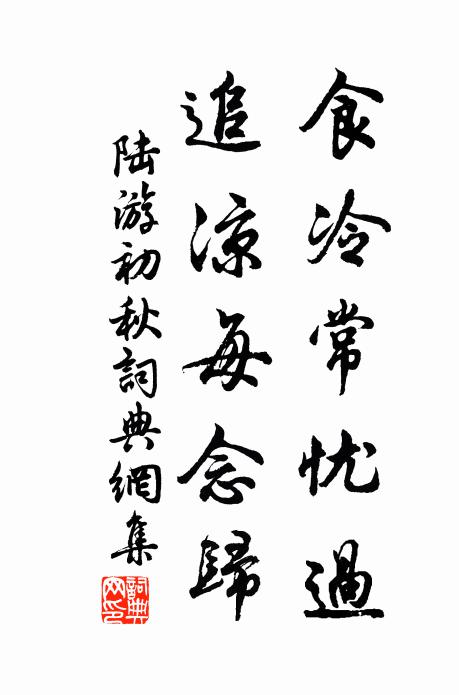 食冷常忧過
追涼每念歸
陆游初秋詞典網集
詞典
网印